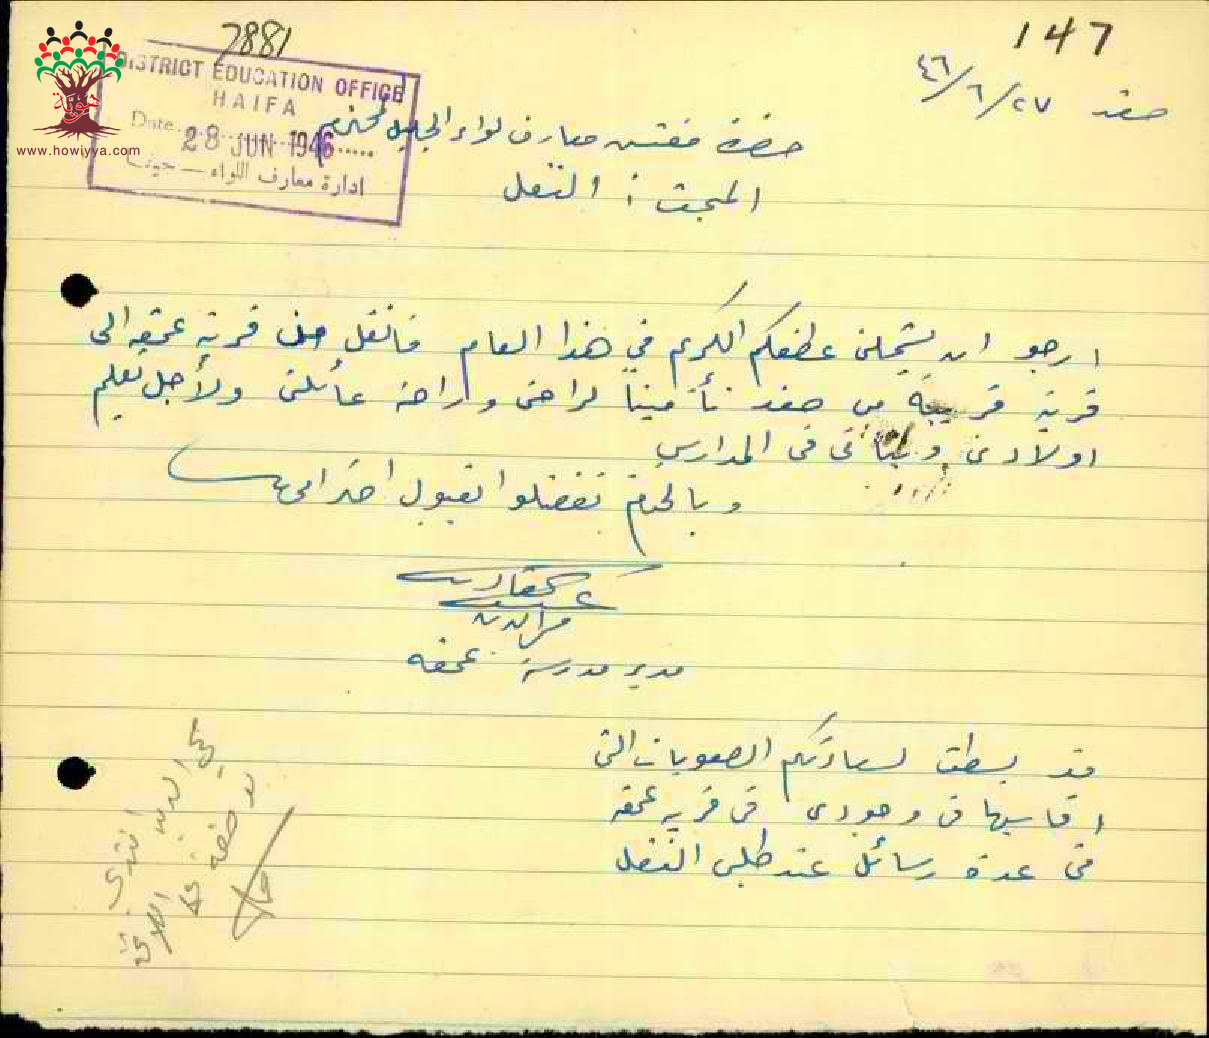 147
7881
صفد ٢٧/٦/٤٦
DISTRICT EDUCATION OFFICE
HAIFA
Date
28 JUN 1946
ادارة معارف اللواء — حيفا
هوية
www.howiyya.com
حضرة مفتش معارف لواء الجليل المحترم
المبحث : النقل
ارجو ان يشملني عطفكم الكريم في هذا العام فانقل من قرية عمقه الى
قرية قريبة من صفد تأمينا لراحتي وراحة عائلتي ولأجل تعليم
اولادي وبناتي في المدارس
وبالختام تفضلوا بقبول احترامي
مدير مدرسة عمقه
قد بسطت لسيادتكم الصعوبات التي
اقاسيها في وجودي في قرية عمقه
في عدة رسائل عند طلبي النقل